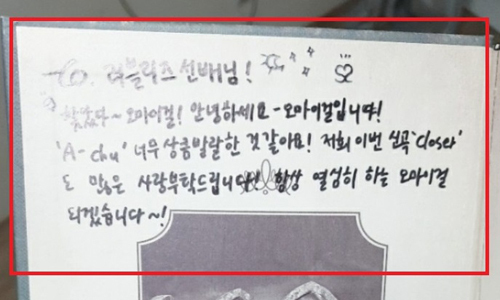 To. 러블리즈 선배님!
찾았다~ 오마이걸! 안녕하세요 - 오마이걸입니다!
'A-chu' 너무 상큼발랄한 것 같아요! 저희 이번 신곡 'Closer'
도 많은 사랑부탁드립니다! 항상 열심히 하는 오마이걸
되겠습니다~!